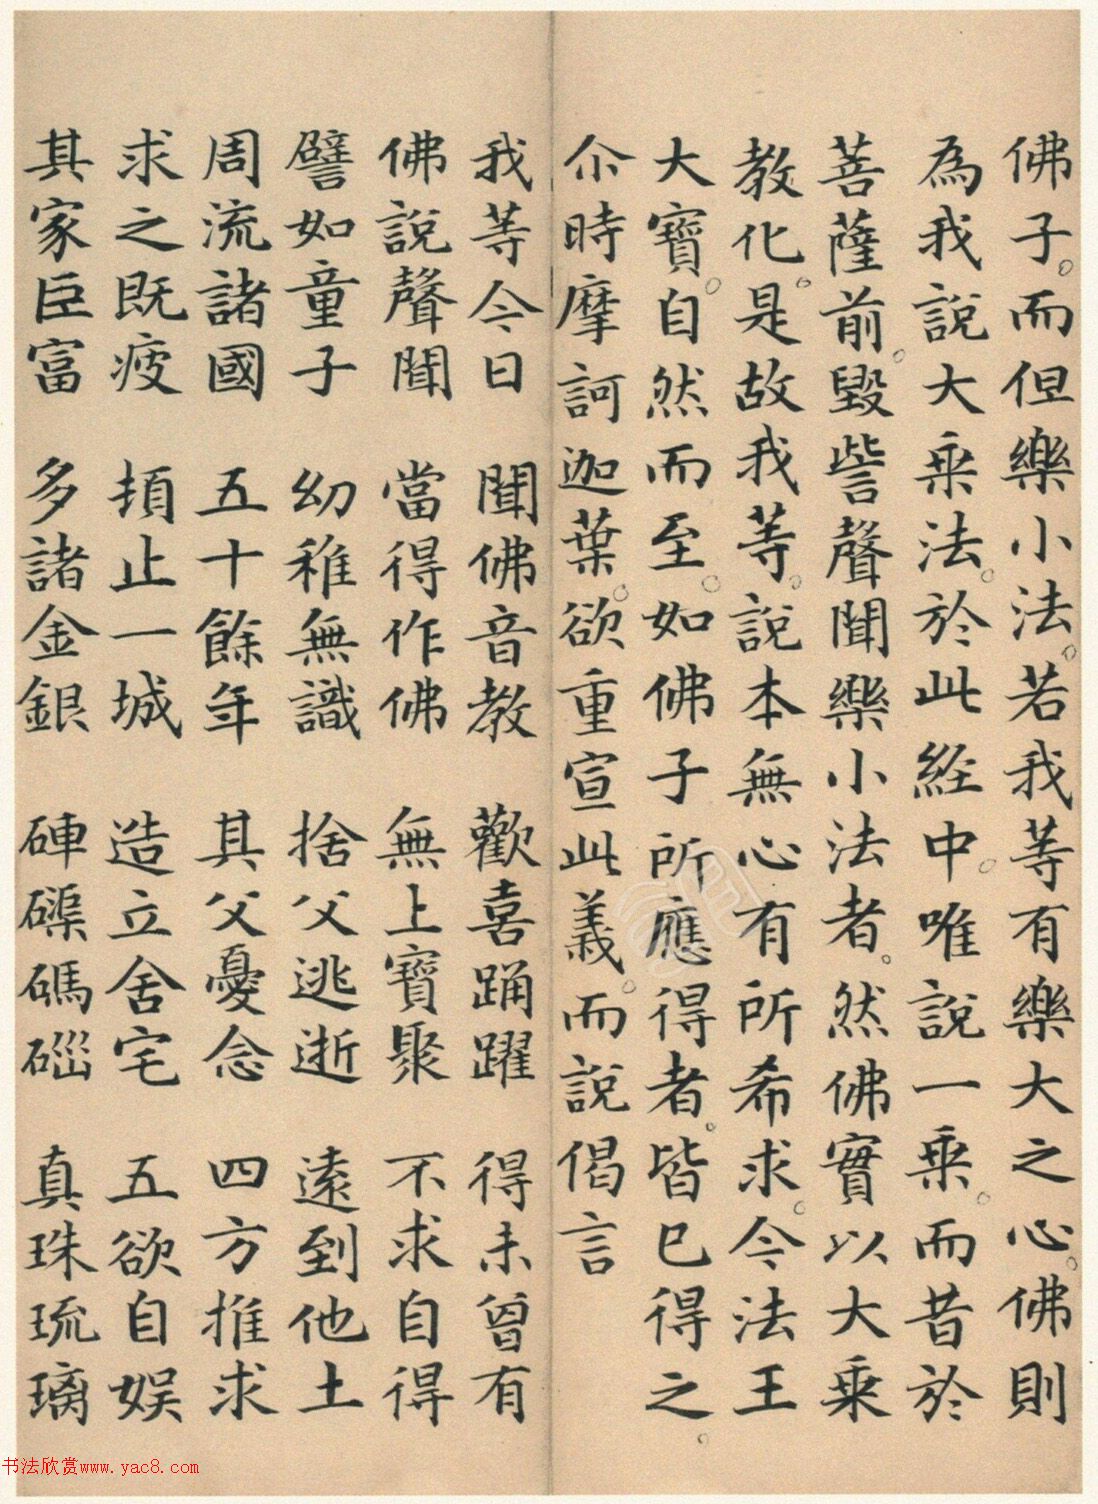 佛子。而但樂小法。若我等有樂大之心。佛則
為我說大乗法。於此經中。唯說一乗。而昔於
菩薩前。毀訾聲聞樂小法者。然佛實以大乗
教化。是故我等。說本無心有所希求。今法王
大寶。自然而至。如佛子所應得者。皆已得之。
尒時摩訶迦葉。欲重宣此義。而說偈言
我等今日 聞佛音教 歡喜踊躍 得未曾有
佛說聲聞 當得作佛 無上寶聚 不求自得
譬如童子 幼稚無識 捨父逃逝 遠到他土
周流諸國 五十餘年 其父憂念 四方推求
求之既疲 頓止一城 造立舍宅 五欲自娛
其家臣富 多諸金銀 硨磲碼碯 真珠琉璃
书法欣赏www.yac8.com